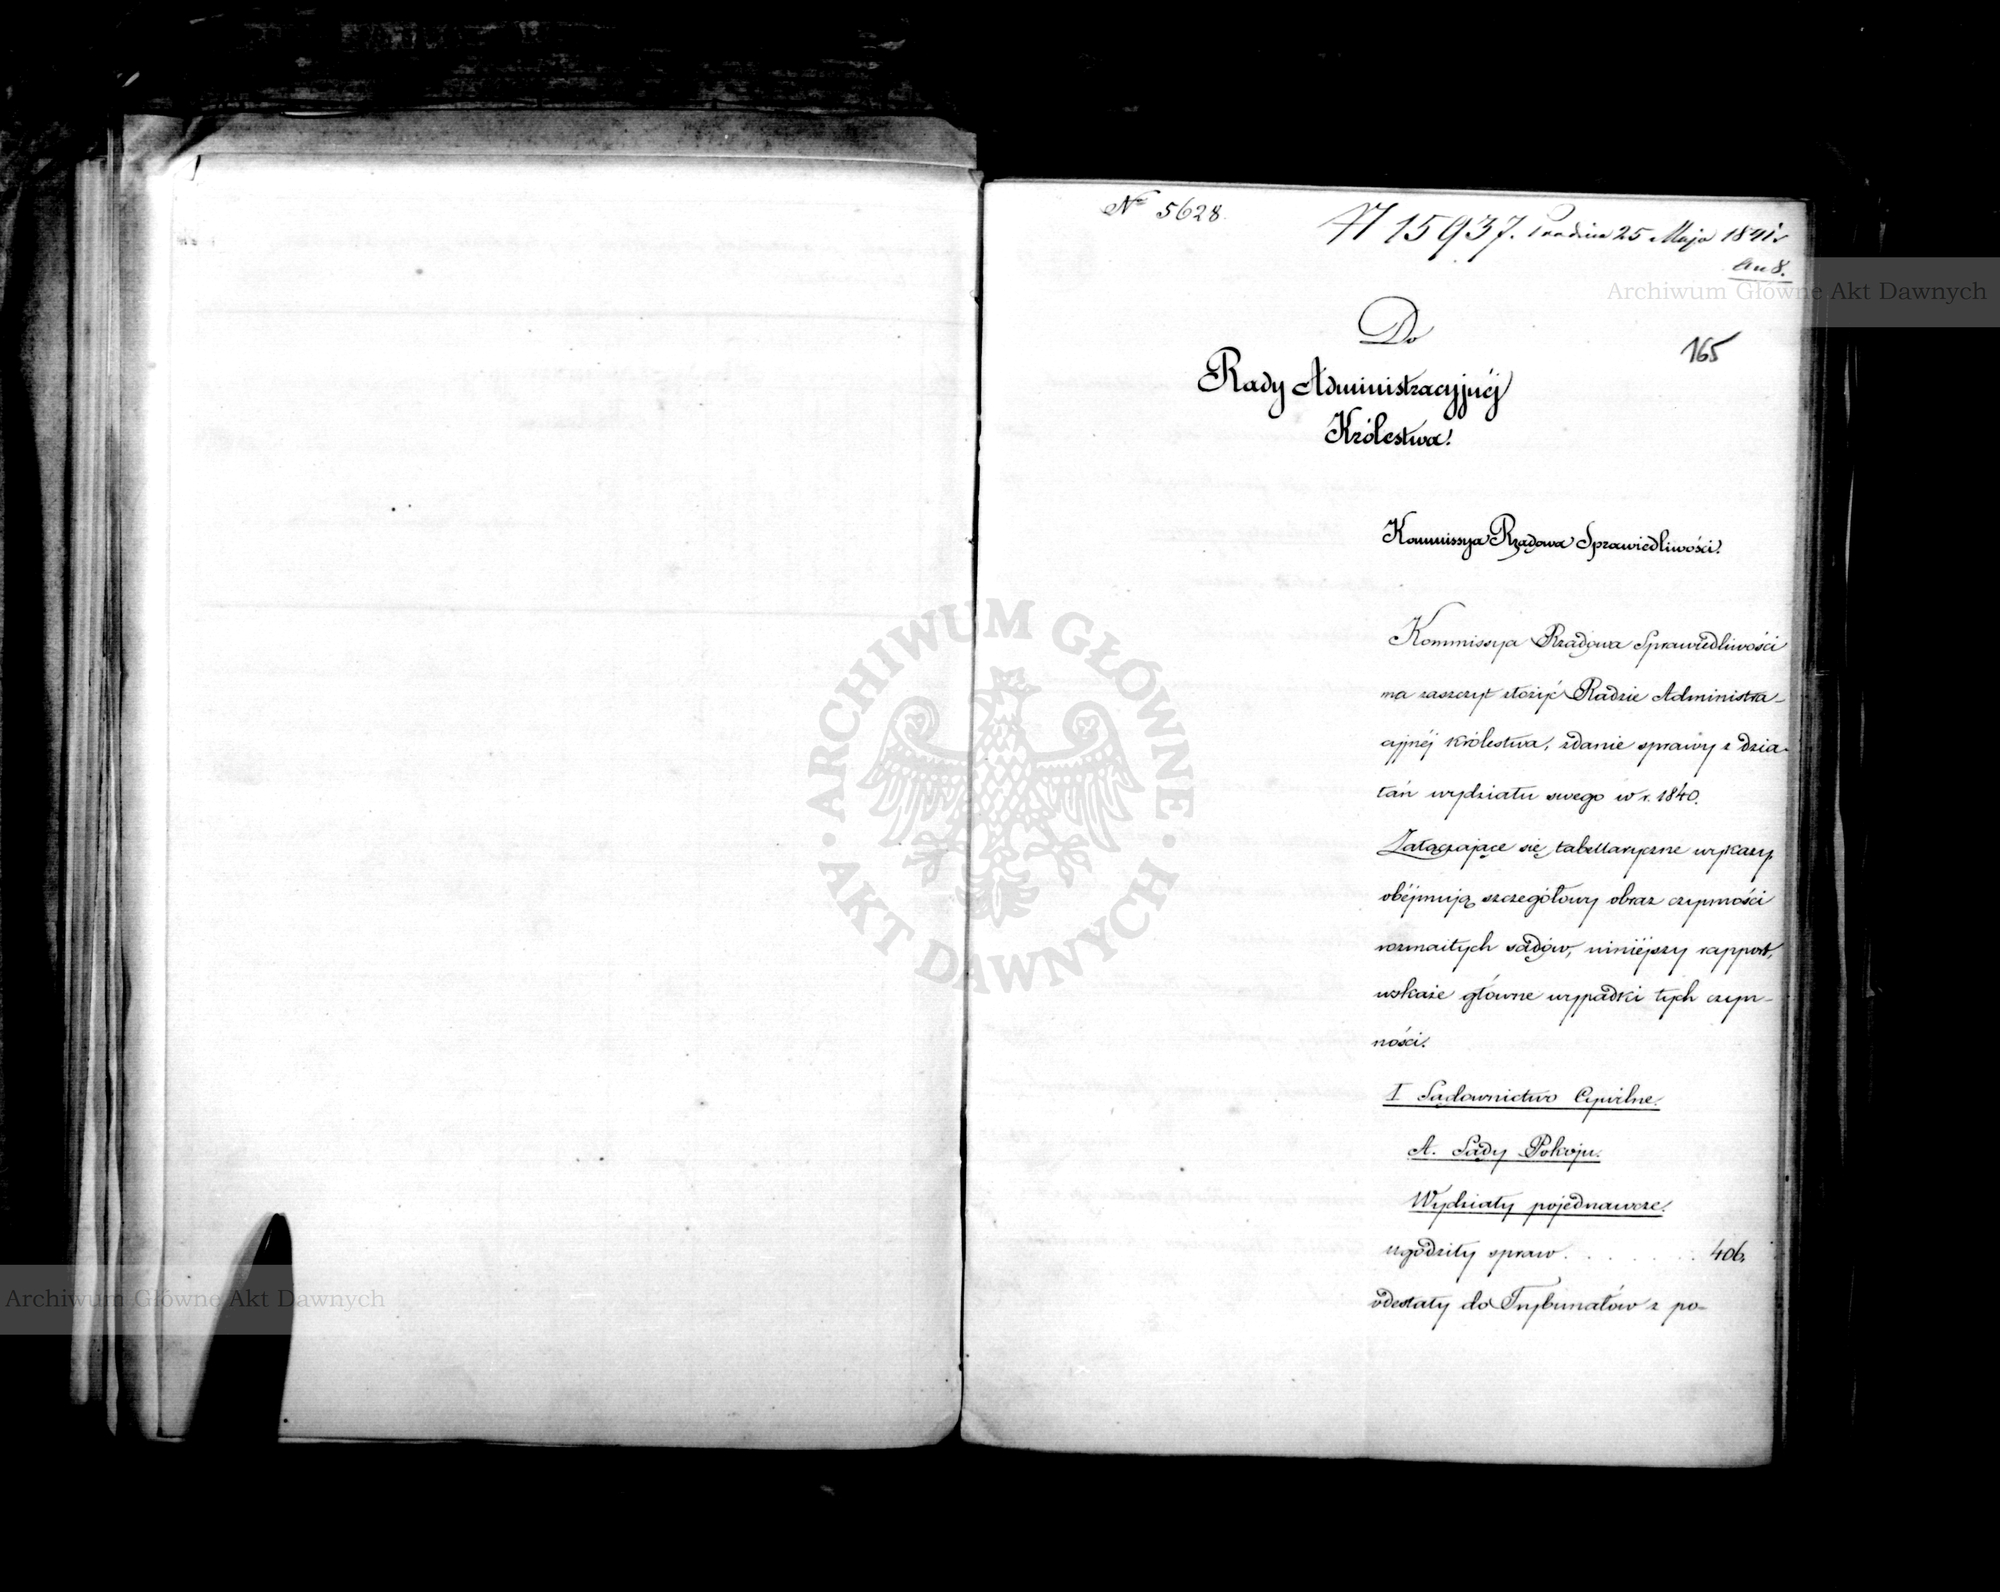 № 5628.
15937. 25 Maja 1841 r
165
Do
Rady Administracyjnéj
Królestwa.
Kommissya Rządowa Sprawiedliwości.
Kommissya Rządowa Sprawiedliwości
ma zaszczyt złożyć Radzie Administra-
cyjnéj Królestwa, zdanie sprawy z dzia-
łań wydziału swego w r. 1840.
Załączające się tabellaryczne wykazy
obéjmują szczegółowy obraz czynności
rozmaitych sądów, niniéjszy rapport,
wskaże główne wypadki tych czyn-
ności.
I Sądownictwo Cywilne.
A. Sądy Pokoju.
Wydziały pojednawcze.
ugodziły spraw . . . . . . . 406.
odesłały do Trybunałów z po-
Archiwum Główne Akt Dawnych
Archiwum Główne Akt Dawnych
ARCHIWUM GŁÓWNE · AKT DAWNYCH ·